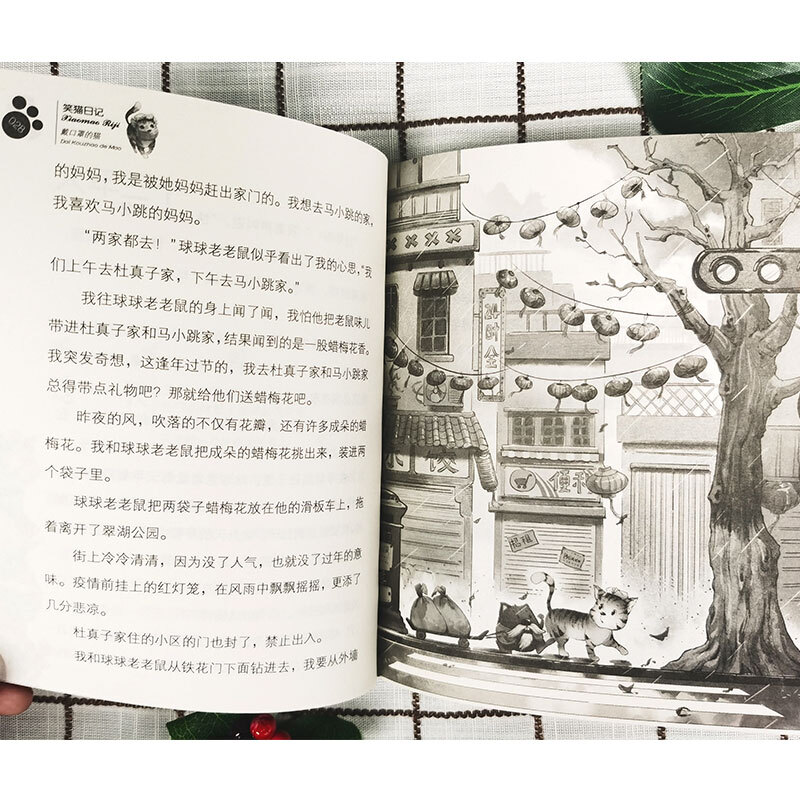 028
笑猫日记
Xiaomao Riji
戴口罩的猫
Dai Kouzhao de Mao
的妈妈，我是被她妈妈赶出家门的。我想去马小跳的家，
我喜欢马小跳的妈妈。
“两家都去！”球球老老鼠似乎看出了我的心思，“我
们上午去杜真子家，下午去马小跳家。”
我往球球老老鼠的身上闻了闻，我怕他把老鼠味儿
带进杜真子家和马小跳家，结果闻到的是一股蜡梅花香。
我突发奇想，这逢年过节的，我去杜真子家和马小跳家
总得带点礼物吧？那就给他们送蜡梅花吧。
昨夜的风，吹落的不仅有花瓣，还有许多成朵的蜡
梅花。我和球球老老鼠把成朵的蜡梅花挑出来，装进两
个袋子里。
球球老老鼠把两袋子蜡梅花放在他的滑板车上，拖
着离开了翠湖公园。
街上冷冷清清，因为没了人气，也就没了过年的意
味。疫情前挂上的红灯笼，在风雨中飘飘摇摇，更添了
几分悲凉。
杜真子家住的小区的门也封了，禁止出入。
我和球球老老鼠从铁花门下面钻进去，我要从外墙